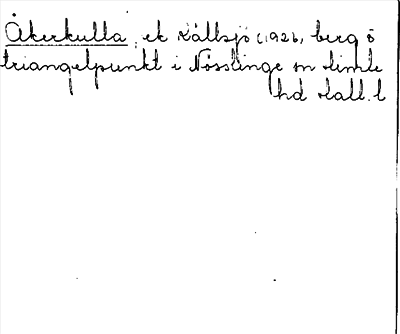 Åkerkulla, ek Källsjö (1926, berg ö
triangelpunkt i Nösslinge sn Himle
hd Hall. l